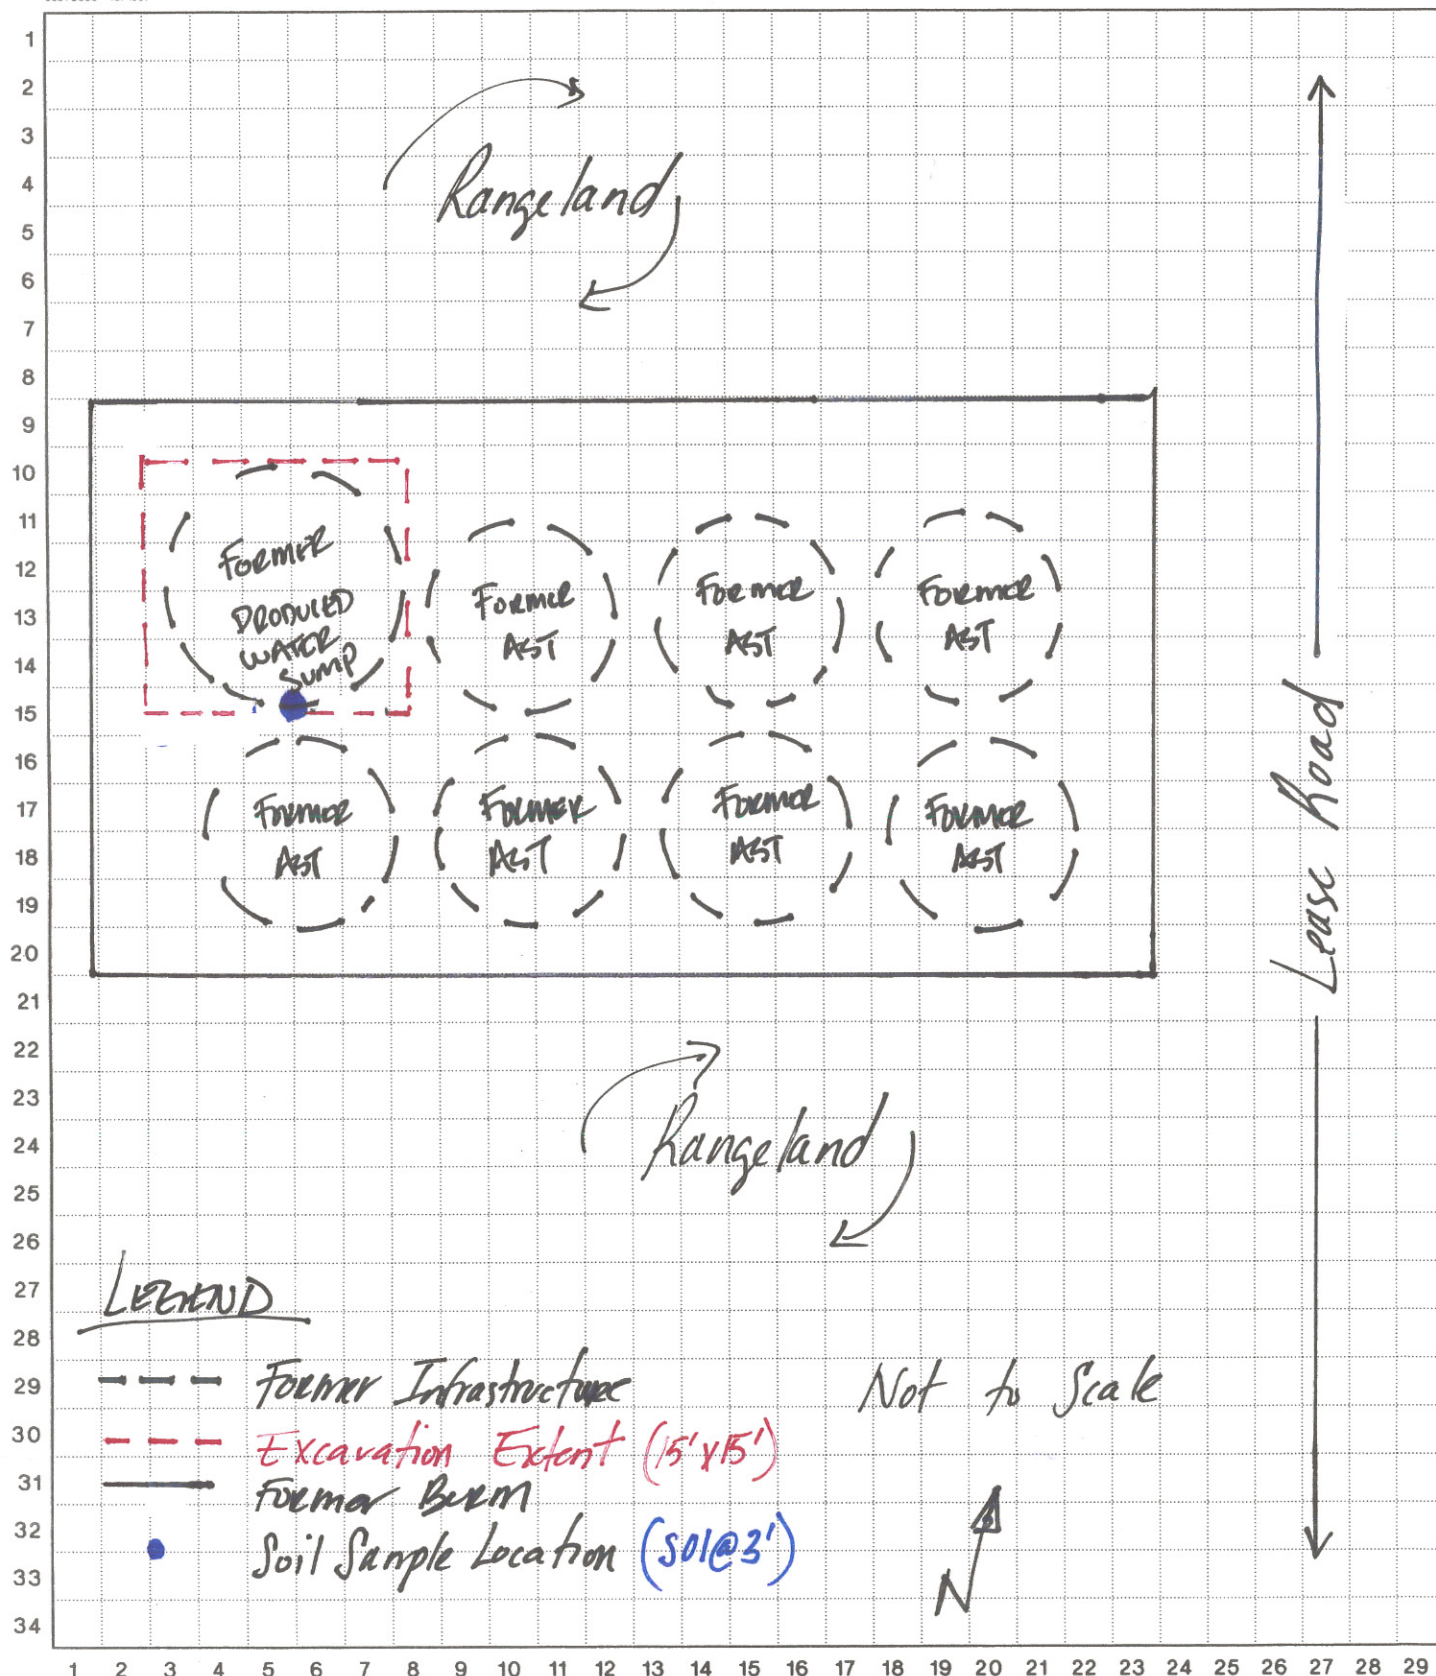 1
2
3
4
5
6
7
8
9
10
11
12
13
14
15
16
17
18
19
20
21
22
23
24
25
26
27
28
29
30
31
32
33
34
Rangeland
FORMER
PRODUCED
WATER
SUMP
FORMER
AST
FORMER
AST
FORMER
AST
FORMER
AST
FORMER
AST
FORMER
AST
FORMER
AST
Lease Road
Rangeland
LEGEND
Former Infrastructure
Excavation Extent (15'x15')
Former Berm
Soil Sample Location (S01@3')
Not to Scale
N
1 2 3 4 5 6 7 8 9 10 11 12 13 14 15 16 17 18 19 20 21 22 23 24 25 26 27 28 29